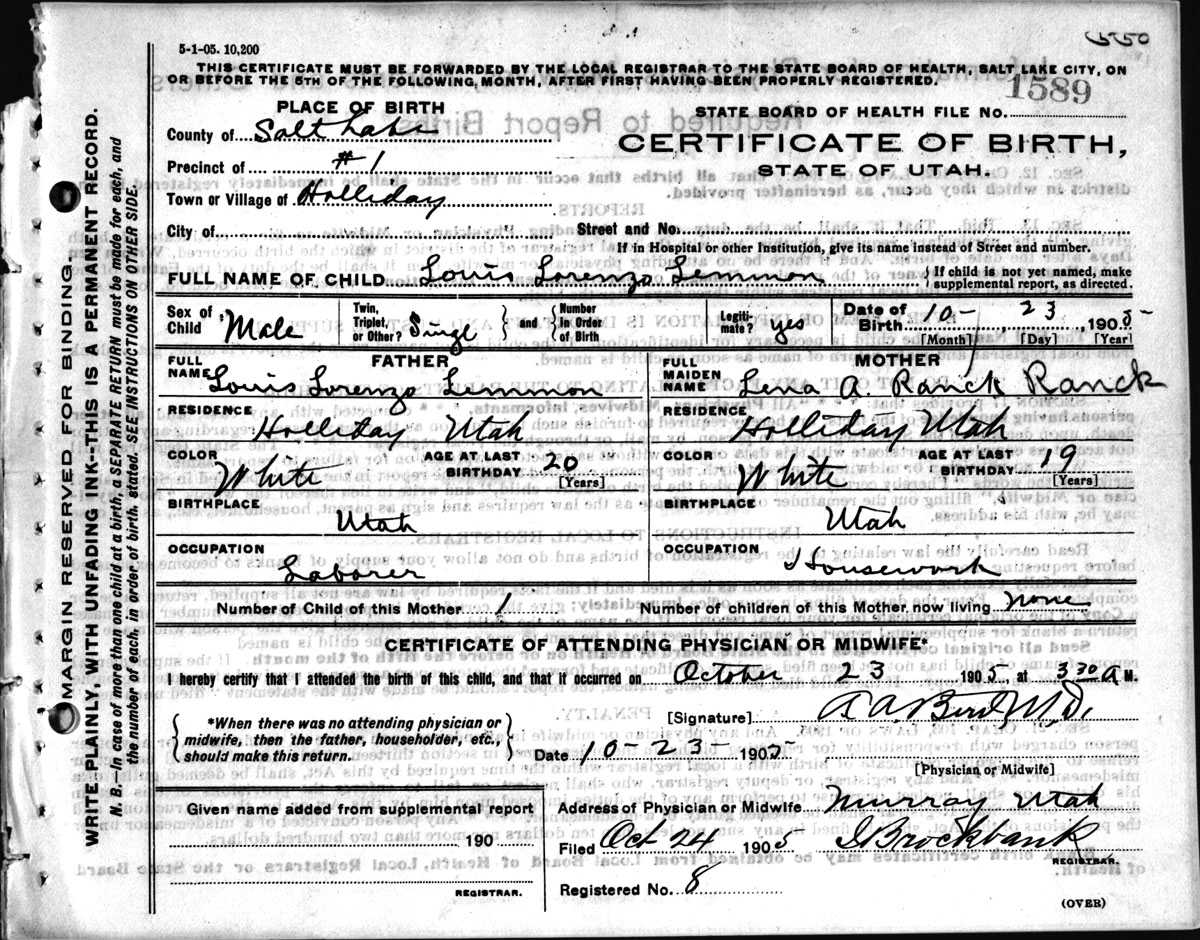 5-1-05. 10,200
550
THIS CERTIFICATE MUST BE FORWARDED BY THE LOCAL REGISTRAR TO THE STATE BOARD OF HEALTH, SALT LAKE CITY, ON
OR BEFORE THE 5TH OF THE FOLLOWING MONTH, AFTER FIRST HAVING BEEN PROPERLY REGISTERED.
1589
PLACE OF BIRTH
STATE BOARD OF HEALTH FILE No.
County of Salt Lake
CERTIFICATE OF BIRTH,
Precinct of #1
STATE OF UTAH.
Town or Village of Holliday
City of Street and No.
If in Hospital or other Institution, give its name instead of Street and number.
FULL NAME OF CHILD Louis Lorenzo Lemmon { If child is not yet named, make supplemental report, as directed.
Sex of Child Male Twin, Triplet, or Other? Singe } and { Number in Order of Birth Legiti-mate? yes Date of Birth 10- 23 1905
[Month] [Day] [Year]
FATHER
FULL NAME Louis Lorenzo Lemmon
RESIDENCE
Holliday Utah
COLOR White AGE AT LAST BIRTHDAY 20 [Years]
BIRTHPLACE
Utah
OCCUPATION
Laborer
MOTHER
FULL MAIDEN NAME Lena A. Ranck Ranck
RESIDENCE
Holliday Utah
COLOR White AGE AT LAST BIRTHDAY 19 [Years]
BIRTHPLACE
Utah
OCCUPATION
Housework
Number of Child of this Mother 1 Number of children of this Mother now living none
CERTIFICATE OF ATTENDING PHYSICIAN OR MIDWIFE*
I hereby certify that I attended the birth of this child, and that it occurred on October 23 1905, at 3 30 A M.
{ *When there was no attending physician or
midwife, then the father, householder, etc.,
should make this return. }
[Signature] A A. Bird, M.D.
Date 10-23- 1905
[Physician or Midwife]
Given name added from supplemental report
190
REGISTRAR.
Address of Physician or Midwife Murray Utah
Filed Oct 24 1905 Brockbank
REGISTRAR.
Registered No. 8
(OVER)
MARGIN RESERVED FOR BINDING.
WRITE PLAINLY, WITH UNFADING INK--THIS IS A PERMANENT RECORD.
N. B.—In case of more than one child at a birth, a SEPARATE RETURN must be made for each, and
the number of each, in order of birth, stated. SEE INSTRUCTIONS ON OTHER SIDE.